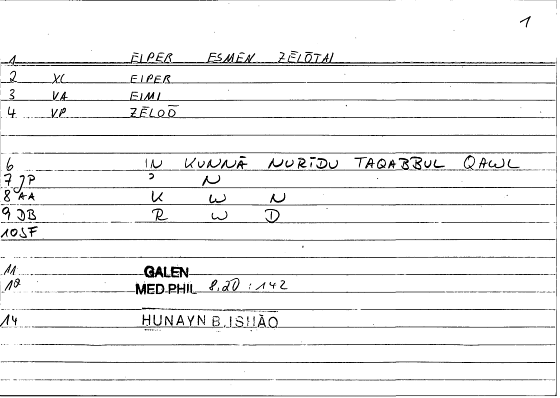 1
1 EIPER ESMEN ZĒLŌTAI
2 XC EIPER
3 VA EIMI
4 VP ZĒLOŌ
6 IN KUNNĀ NURĪDU TAQABBUL QAWL
7 JP ʾ N
8 AA K W N
9 DB R W D
10 SF
11 GALEN
12 MED PHIL 8,20 : 142
14 HUNAYN B. ISḤĀQ